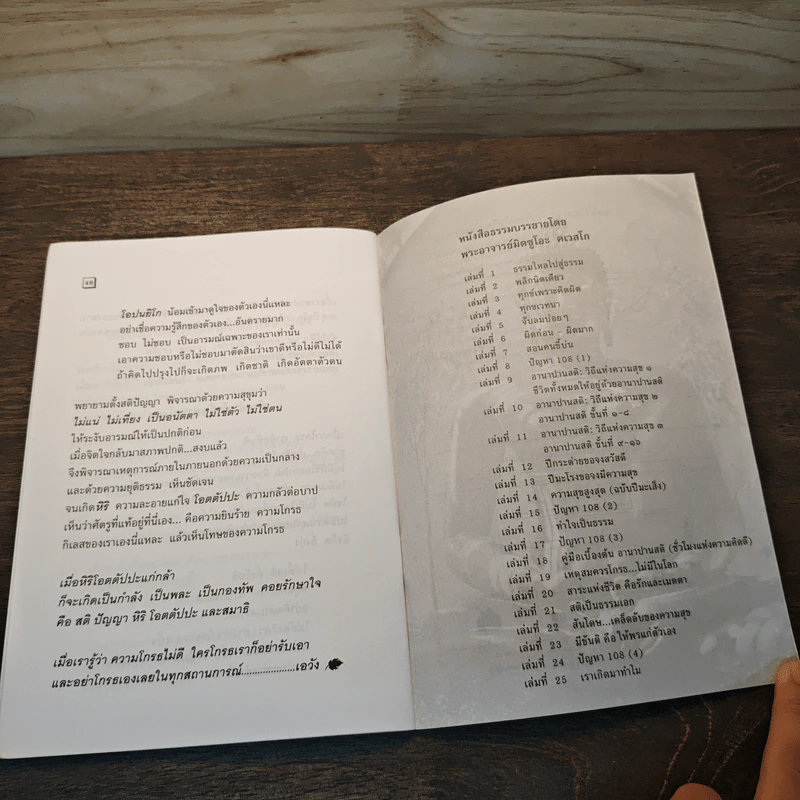 ๔๘
โอปนยิโก น้อมเข้ามาดูใจของตัวเองนี่แหละ
อย่าเชื่อความรู้สึกของตัวเอง...อันตรายมาก
ชอบ ไม่ชอบ เป็นอารมณ์เฉพาะของเราเท่านั้น
เอาความชอบหรือไม่ชอบมาตัดสินว่าเขาดีหรือไม่ดีไม่ได้
ถ้าคิดไปปรุงไปก็จะเกิดภพ เกิดชาติ เกิดอัตตาตัวตน
พยายามตั้งสติปัญญา พิจารณาด้วยความสุขุมว่า
ไม่แน่ ไม่เที่ยง เป็นอนัตตา ไม่ใช่ตัว ไม่ใช่ตน
ให้ระงับอารมณ์ให้เป็นปกติก่อน
เมื่อจิตใจกลับมาสภาพปกติ...สงบแล้ว
จึงพิจารณาเหตุการณ์ภายในภายนอกด้วยความเป็นกลาง
และด้วยความยุติธรรม เห็นชัดเจน
จนเกิดหิริ ความละอายแก่ใจ โอตตัปปะ ความกลัวต่อบาป
เห็นว่าศัตรูที่แท้อยู่ที่นี่เอง... คือความยินร้าย ความโกรธ
กิเลสของเราเองนี่แหละ แล้วเห็นโทษของความโกรธ
เมื่อหิริโอตตัปปะแก่กล้า
ก็จะเกิดเป็นกำลัง เป็นพละ เป็นกองทัพ คอยรักษาใจ
คือ สติ ปัญญา หิริ โอตตัปปะ และสมาธิ
เมื่อเรารู้ว่า ความโกรธไม่ดี ใครโกรธเราก็อย่ารับเอา
และอย่าโกรธเองเลยในทุกสถานการณ์....................เอวัง
หนังสือธรรมบรรยายโดย
พระอาจารย์มิตซูโอะ คเวสโก
เล่มที่ 1 ธรรมไหลไปสู่ธรรม
เล่มที่ 2 พลิกนิดเดียว
เล่มที่ 3 ทุกข์เพราะคิดผิด
เล่มที่ 4 ทุกขเวทนา
เล่มที่ 5 จับลมบ่อยๆ
เล่มที่ 6 ผิดก่อน - ผิดมาก
เล่มที่ 7 สอนคนขี้บ่น
เล่มที่ 8 ปัญหา 108 (1)
เล่มที่ 9 อานาปานสติ: วิถีแห่งความสุข ๑
ชีวิตทั้งหมดให้อยู่ด้วยอานาปานสติ
เล่มที่ 10 อานาปานสติ: วิถีแห่งความสุข ๒
อานาปานสติ ขั้นที่ ๑-๘
เล่มที่ 11 อานาปานสติ: วิถีแห่งความสุข ๓
อานาปานสติ ขั้นที่ ๙-๑๖
เล่มที่ 12 ปีกระต่ายขอจงสวัสดี
เล่มที่ 13 ปีมะโรงขอจงมีความสุข
เล่มที่ 14 ความสุขสูงสุด (ฉบับปีมะเส็ง)
เล่มที่ 15 ปัญหา 108 (2)
เล่มที่ 16 ทำใจเป็นธรรม
เล่มที่ 17 ปัญหา 108 (3)
เล่มที่ 18 คู่มือเบื้องต้น อานาปานสติ (ชั่วโมงแห่งความคิดดี)
เล่มที่ 19 เหตุสมควรโกรธ...ไม่มีในโลก
เล่มที่ 20 สาระแห่งชีวิต คือรักและเมตตา
เล่มที่ 21 สติเป็นธรรมเอก
เล่มที่ 22 สันโดษ...เคล็ดลับของความสุข
เล่มที่ 23 มีขันติ คือ ให้พรแก่ตัวเอง
เล่มที่ 24 ปัญหา 108 (4)
เล่มที่ 25 เราเกิดมาทำไม